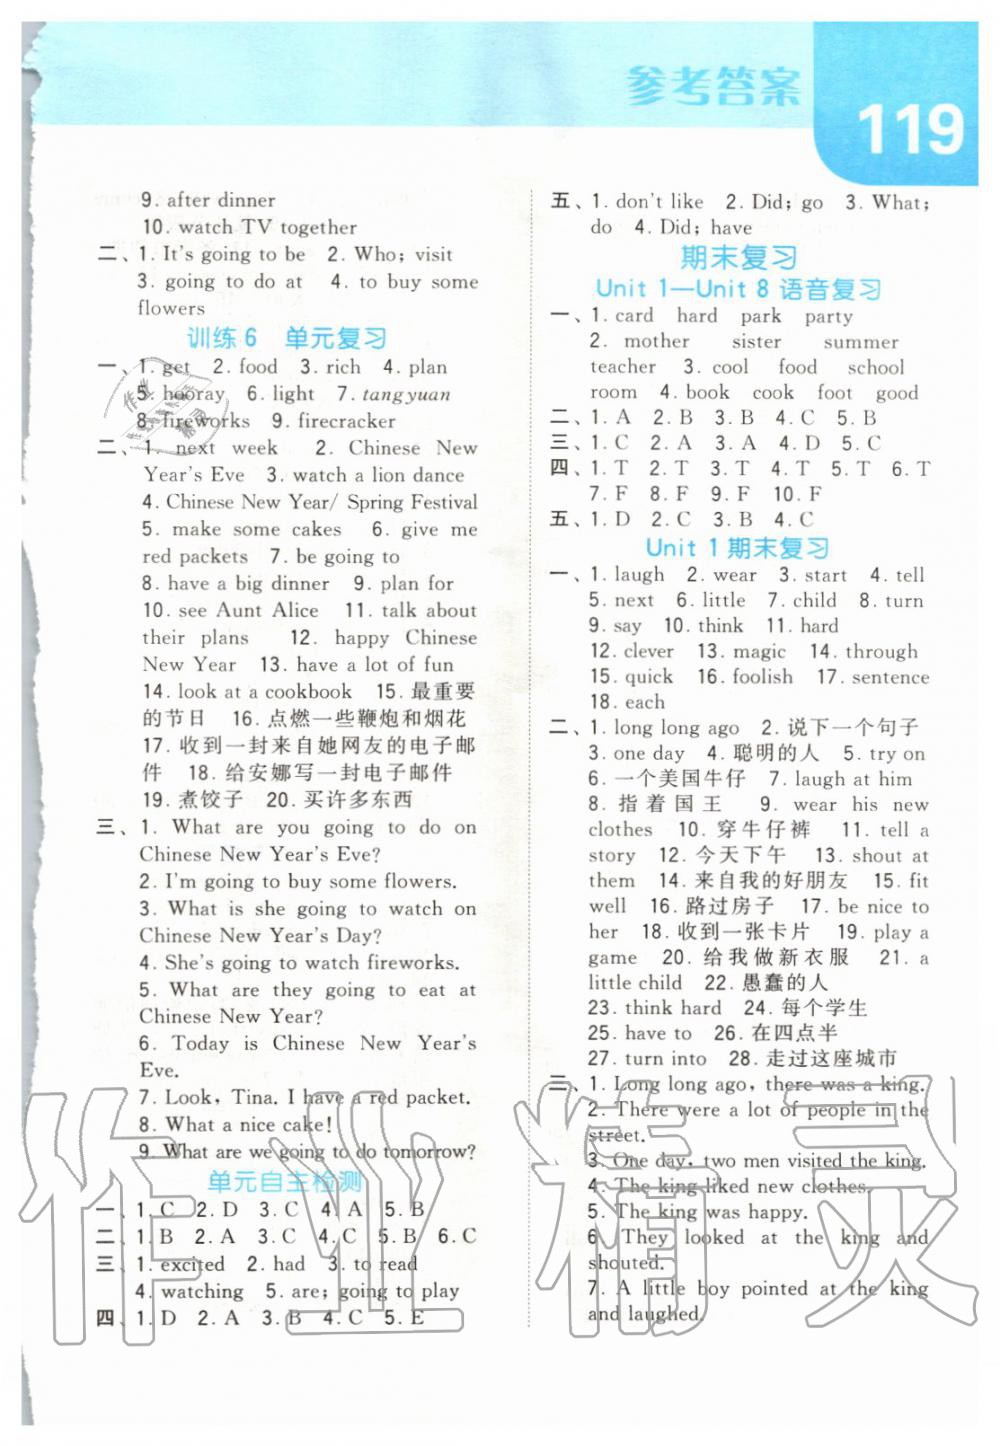 参考答案
119
9. after dinner
10. watch TV together
二、1. It's going to be 2. Who; visit
3. going to do at 4. to buy some
flowers
训练 6 单元复习
一、1. get 2. food 3. rich 4. plan
5. hooray 6. light 7. tangyuan
8. fireworks 9. firecracker
二、1. next week 2. Chinese New
Year's Eve 3. watch a lion dance
4. Chinese New Year/ Spring Festival
5. make some cakes 6. give me
red packets 7. be going to
8. have a big dinner 9. plan for
10. see Aunt Alice 11. talk about
their plans 12. happy Chinese
New Year 13. have a lot of fun
14. look at a cookbook 15. 最重要
的节日 16. 点燃一些鞭炮和烟花
17. 收到一封来自她网友的电子邮
件 18. 给安娜写一封电子邮件
19. 煮饺子 20. 买许多东西
三、1. What are you going to do on
Chinese New Year's Eve?
2. I'm going to buy some flowers.
3. What is she going to watch on
Chinese New Year's Day?
4. She's going to watch fireworks.
5. What are they going to eat at
Chinese New Year?
6. Today is Chinese New Year's
Eve.
7. Look, Tina. I have a red packet.
8. What a nice cake!
9. What are we going to do tomorrow?
单元自主检测
一、1. C 2. D 3. C 4. A 5. B
二、1. B 2. A 3. C 4. C 5. B 6. C
三、1. excited 2. had 3. to read
4. watching 5. are; going to play
四、1. D 2. A 3. B 4. C 5. E
五、1. don't like 2. Did; go 3. What;
do 4. Did; have
期末复习
Unit 1—Unit 8 语音复习
一、1. card hard park party
2. mother sister summer
teacher 3. cool food school
room 4. book cook foot good
二、1. A 2. B 3. B 4. C 5. B
三、1. C 2. A 3. A 4. D 5. C
四、1. T 2. T 3. T 4. T 5. T 6. T
7. F 8. F 9. F 10. F
五、1. D 2. C 3. B 4. C
Unit 1 期末复习
一、1. laugh 2. wear 3. start 4. tell
5. next 6. little 7. child 8. turn
9. say 10. think 11. hard
12. clever 13. magic 14. through
15. quick 16. foolish 17. sentence
18. each
二、1. long long ago 2. 说下一个句子
3. one day 4. 聪明的人 5. try on
6. 一个美国牛仔 7. laugh at him
8. 指着国王 9. wear his new
clothes 10. 穿牛仔裤 11. tell a
story 12. 今天下午 13. shout at
them 14. 来自我的好朋友 15. fit
well 16. 路过房子 17. be nice to
her 18. 收到一张卡片 19. play a
game 20. 给我做新衣服 21. a
little child 22. 愚蠢的人
23. think hard 24. 每个学生
25. have to 26. 在四点半
27. turn into 28. 走过这座城市
三、1. Long long ago, there was a king.
2. There were a lot of people in the
street.
3. One day, two men visited the king.
4. The king liked new clothes.
5. The king was happy.
6. They looked at the king and
shouted.
7. A little boy pointed at the king
and laughed.
作业精灵